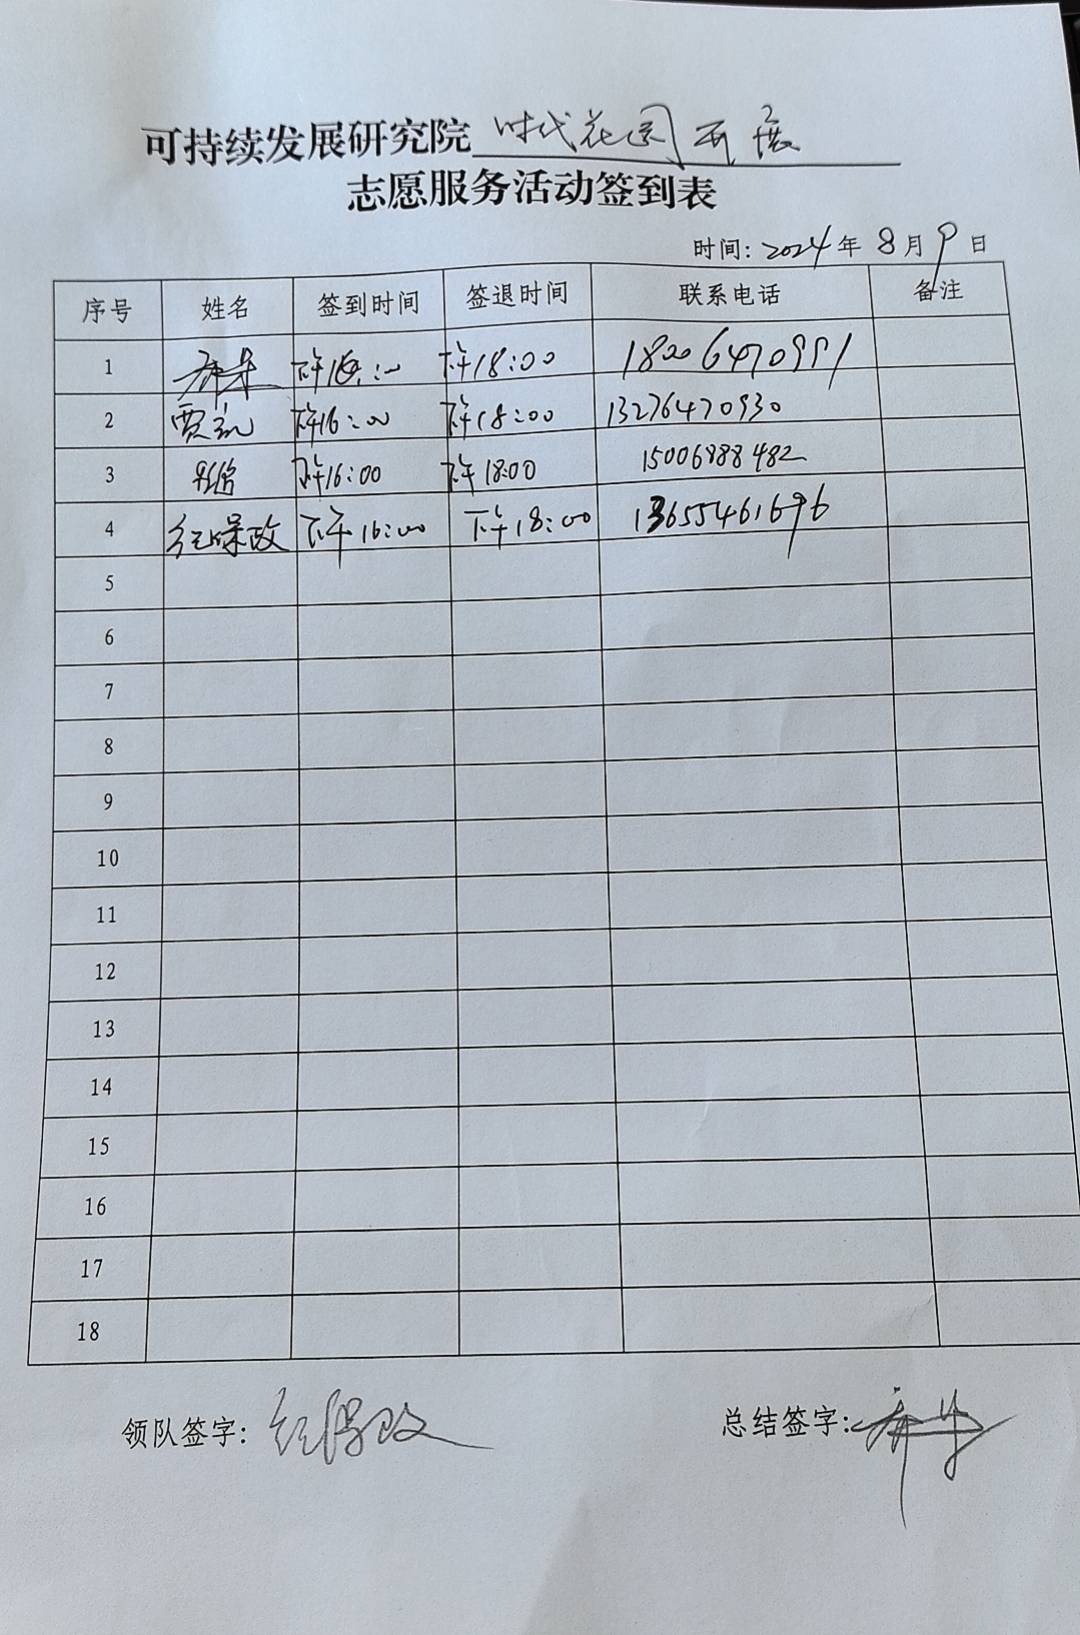 可持续发展研究院 时代花园开展
志愿服务活动签到表
时间: 2024 年 8 月 9 日
序号 姓名 签到时间 签退时间 联系电话 备注
1 下午16:00 下午18:00 18006470991
2 贾凯 下午16:00 下午18:00 13276470930
3 下午16:00 下午18:00 15006888482
4 纪保政 下午16:00 下午18:00 13655461696
5
6
7
8
9
10
11
12
13
14
15
16
17
18
领队签字: 纪保政 总结签字: